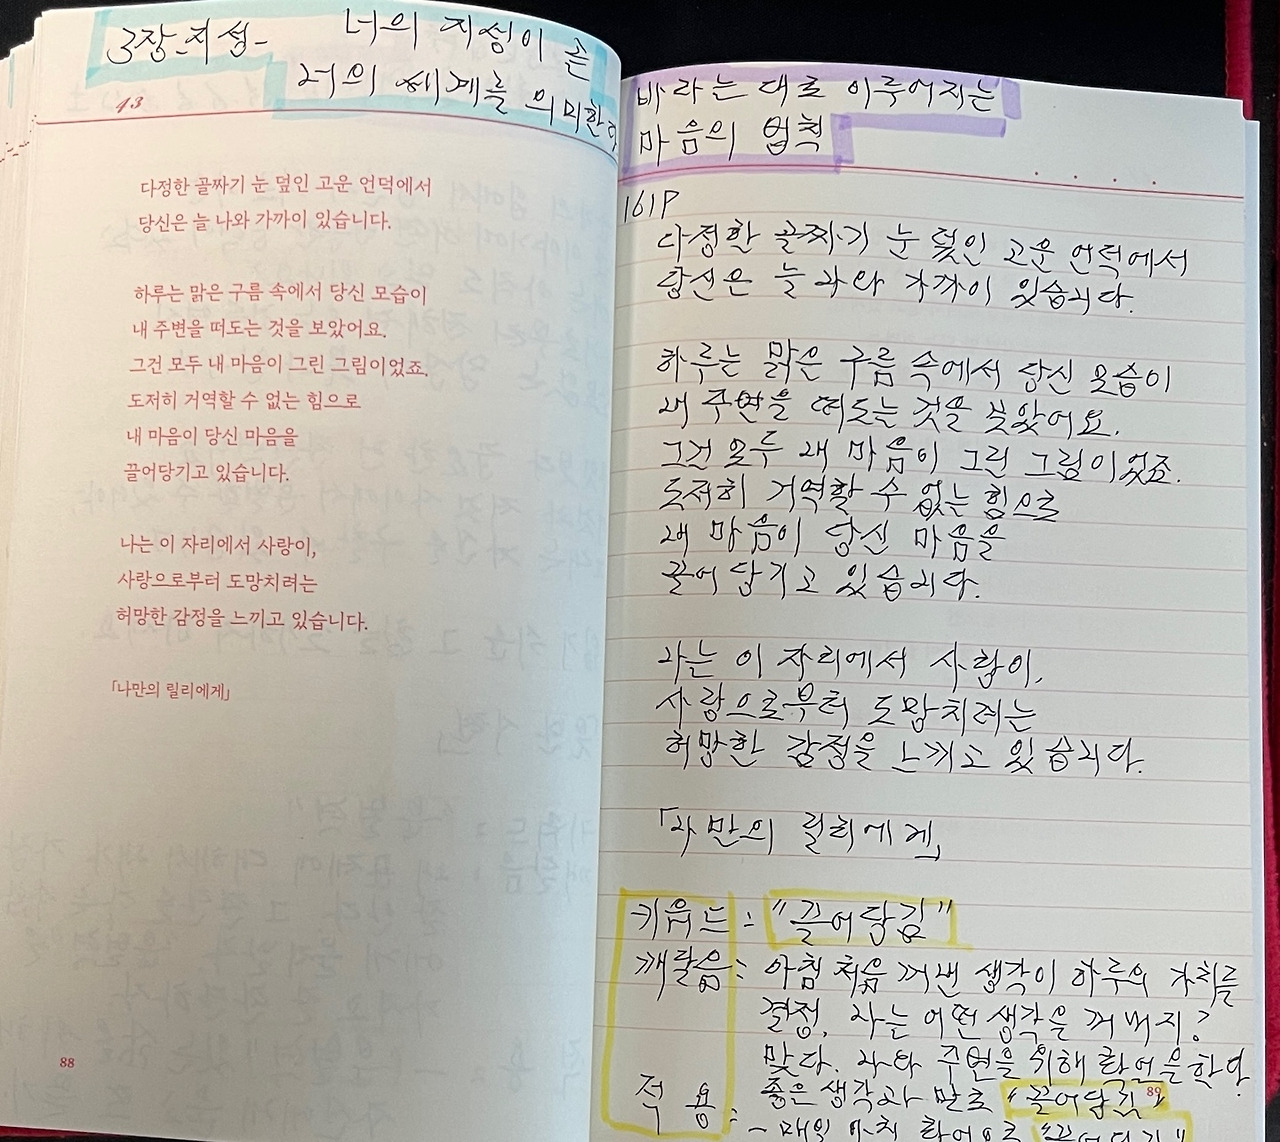 3장-지성- 너의 지성이 곧
너의 세계를 의미한다
43
다정한 골짜기 눈 덮인 고운 언덕에서
당신은 늘 나와 가까이 있습니다.
하루는 맑은 구름 속에서 당신 모습이
내 주변을 떠도는 것을 보았어요.
그건 모두 내 마음이 그린 그림이었죠.
도저히 거역할 수 없는 힘으로
내 마음이 당신 마음을
끌어당기고 있습니다.
나는 이 자리에서 사랑이,
사랑으로부터 도망치려는
허망한 감정을 느끼고 있습니다.
「나만의 릴리에게」
88
바라는 대로 이루어지는
마음의 법칙
161P
다정한 골짜기 눈 덮인 고운 언덕에서
당신은 늘 나와 가까이 있습니다.
하루는 맑은 구름 속에서 당신 모습이
내 주변을 떠도는 것을 보았어요.
그건 모두 내 마음이 그린 그림이었죠.
도저히 거역할 수 없는 힘으로
내 마음이 당신 마음을
끌어당기고 있습니다.
나는 이 자리에서 사랑이,
사랑으로부터 도망치려는
허망한 감정을 느끼고 있습니다.
「나만의 릴리에게」
키워드 : "끌어당김"
깨달음 : 아침 처음 꺼낸 생각이 하루의 가치를
결정. 나는 어떤 생각을 꺼내지?
맞다. 나와 주변을 위해 확언을 한다
좋은 생각과 말로 "끌어당김"
89
적용 : - 매일 아침 확언으로 "끌어당김"